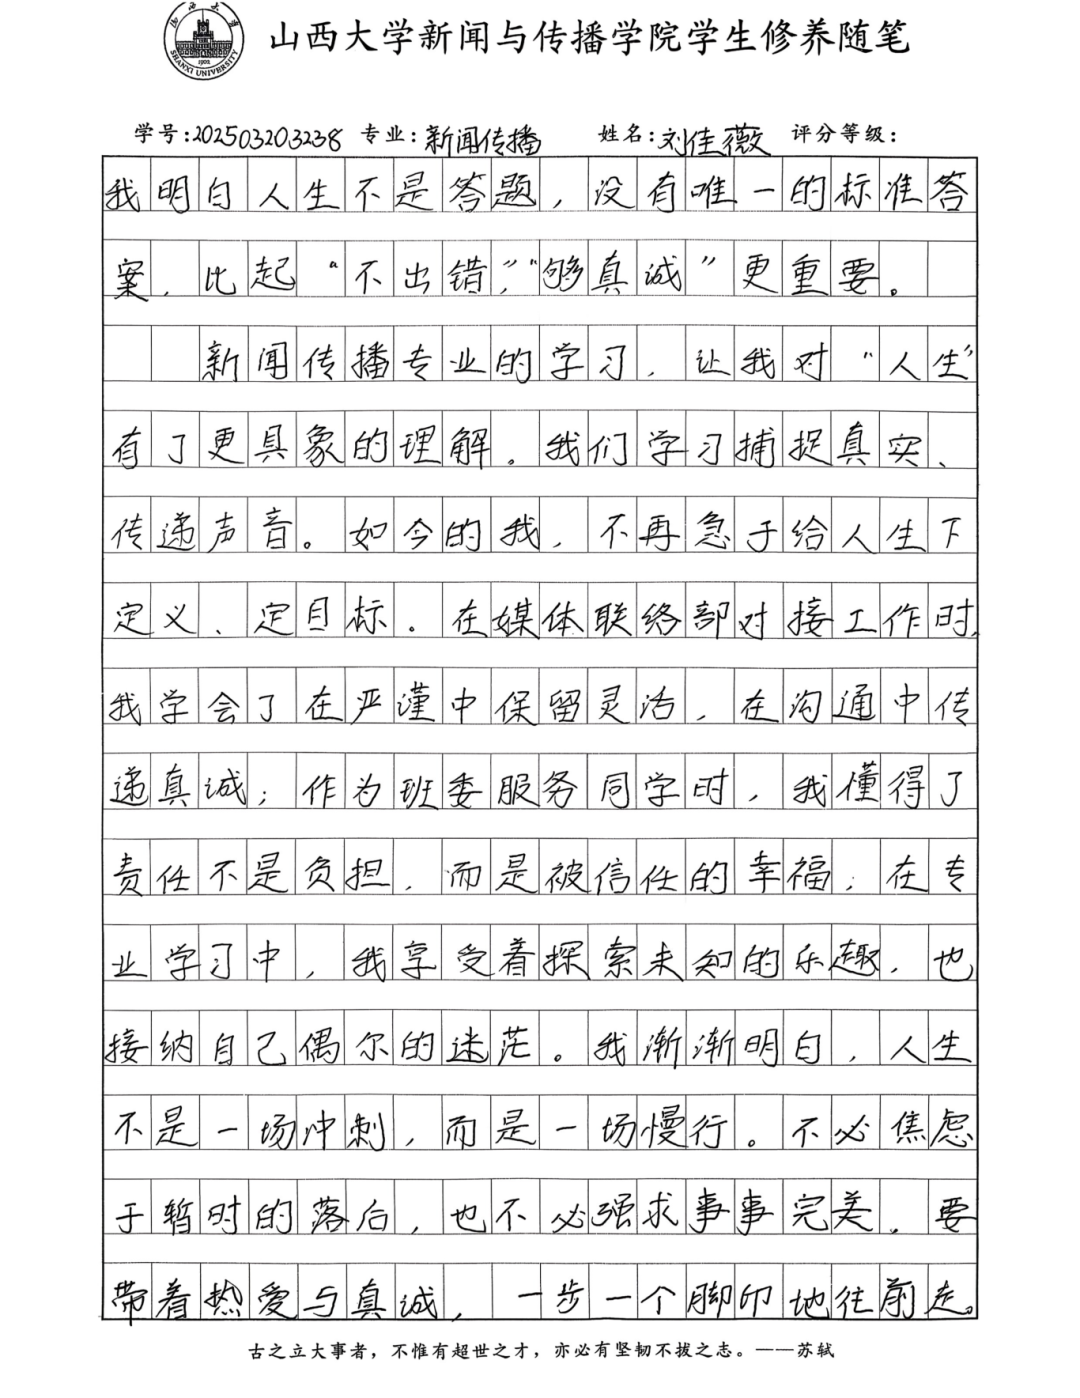 山西大学
1902
SHANXI UNIVERSITY
山西大学新闻与传播学院学生修养随笔
学号:202503203238 专业:新闻传播 姓名:刘佳薇 评分等级:
我明白人生不是答题，没有唯一的标准答
案，比起“不出错”，“够真诚”更重要。
新闻传播专业的学习，让我对“人生”
有了更具象的理解。我们学习捕捉真实、
传递声音。如今的我，不再急于给人生下
定义、定目标。在媒体联络部对接工作时，
我学会了在严谨中保留灵活，在沟通中传
递真诚；作为班委服务同学时，我懂得了
责任不是负担，而是被信任的幸福；在专
业学习中，我享受着探索未知的乐趣，也
接纳自己偶尔的迷茫。我渐渐明白，人生
不是一场冲刺，而是一场慢行。不必焦虑
于暂时的落后，也不必强求事事完美，要
带着热爱与真诚，一步一个脚印地往前走。
古之立大事者，不惟有超世之才，亦必有坚韧不拔之志。——苏轼